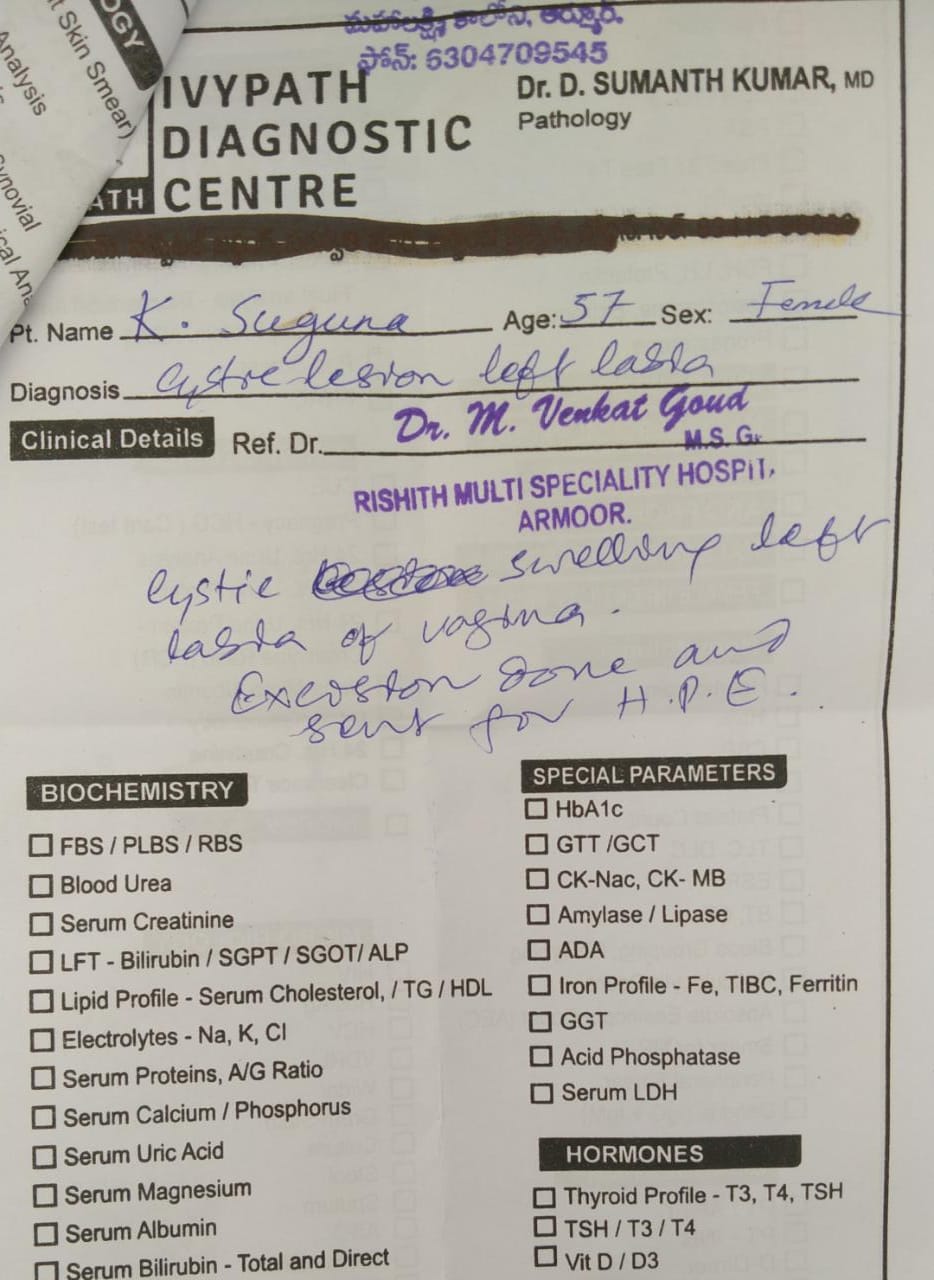 OGY
t Skin Smear)
Analysis
Synovial
ical Ana
మహాలక్ష్మి కాలోని, ఆర్మూర్.
ఫోన్: 6304709545
IVYPATH
DIAGNOSTIC
CENTRE
ATH
Dr. D. SUMANTH KUMAR, MD
Pathology
Pt. Name K. Suguna Age: 57 Sex: Female
Diagnosis cystic lesion left labia
Clinical Details Ref. Dr. Dr. M. Venkat Goud
M.S. G.
RISHITH MULTI SPECIALITY HOSPIT.
ARMOOR.
Cystic swelling left
labia of vagina.
Excision done and
sent for H.P.E.
BIOCHEMISTRY
FBS / PLBS / RBS
Blood Urea
Serum Creatinine
LFT - Bilirubin / SGPT / SGOT/ ALP
Lipid Profile - Serum Cholesterol, / TG / HDL
Electrolytes - Na, K, Cl
Serum Proteins, A/G Ratio
Serum Calcium / Phosphorus
Serum Uric Acid
Serum Magnesium
Serum Albumin
Serum Bilirubin - Total and Direct
SPECIAL PARAMETERS
HbA1c
GTT /GCT
CK-Nac, CK- MB
Amylase / Lipase
ADA
Iron Profile - Fe, TIBC, Ferritin
GGT
Acid Phosphatase
Serum LDH
HORMONES
Thyroid Profile - T3, T4, TSH
TSH / T3 / T4
Vit D / D3